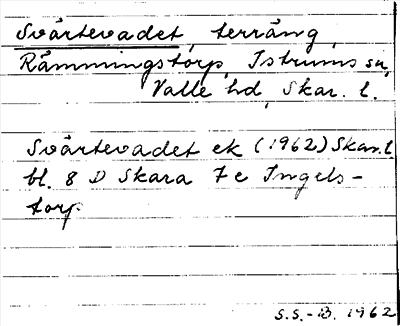 Svärtevadet, terräng,
Rämmingstorp, Istrums sn,
Valle hd, Skar. l.
Svärtevadet ek (1962) Skar. l.
bl. 8 D Skara 7 c Ingels-
torp.
S.S.-B. 1962